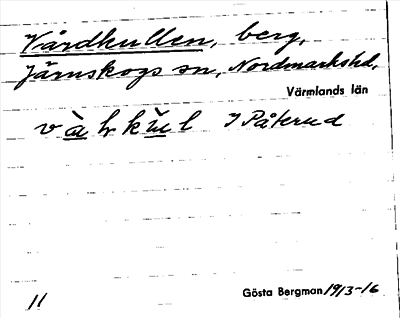 Vårdkullen, berg,
Järnskogs sn, Nordmarks hd,
Värmlands län
v àl k ùl I Påterud
Gösta Bergman 1913-16
11